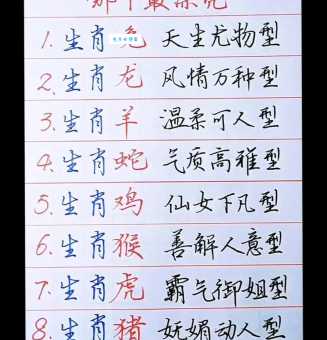 哪个最漂亮
1.生肖兔 天生尤物型
2.生肖龙 风情万种型
3.生肖羊 温柔可人型
4.生肖蛇 气质高雅型
5.生肖鸡 仙女下凡型
6.生肖猴 善解人意型
7.生肖虎 霸气御姐型
8.生肖猪 妩媚动人型